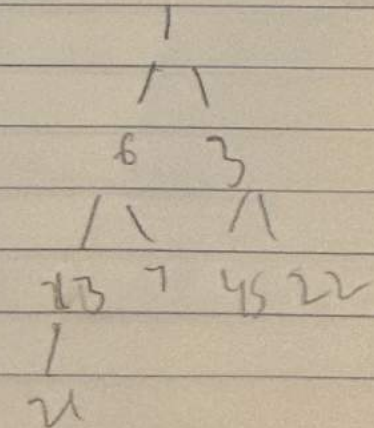 1
6 3
13 7 45 22
21